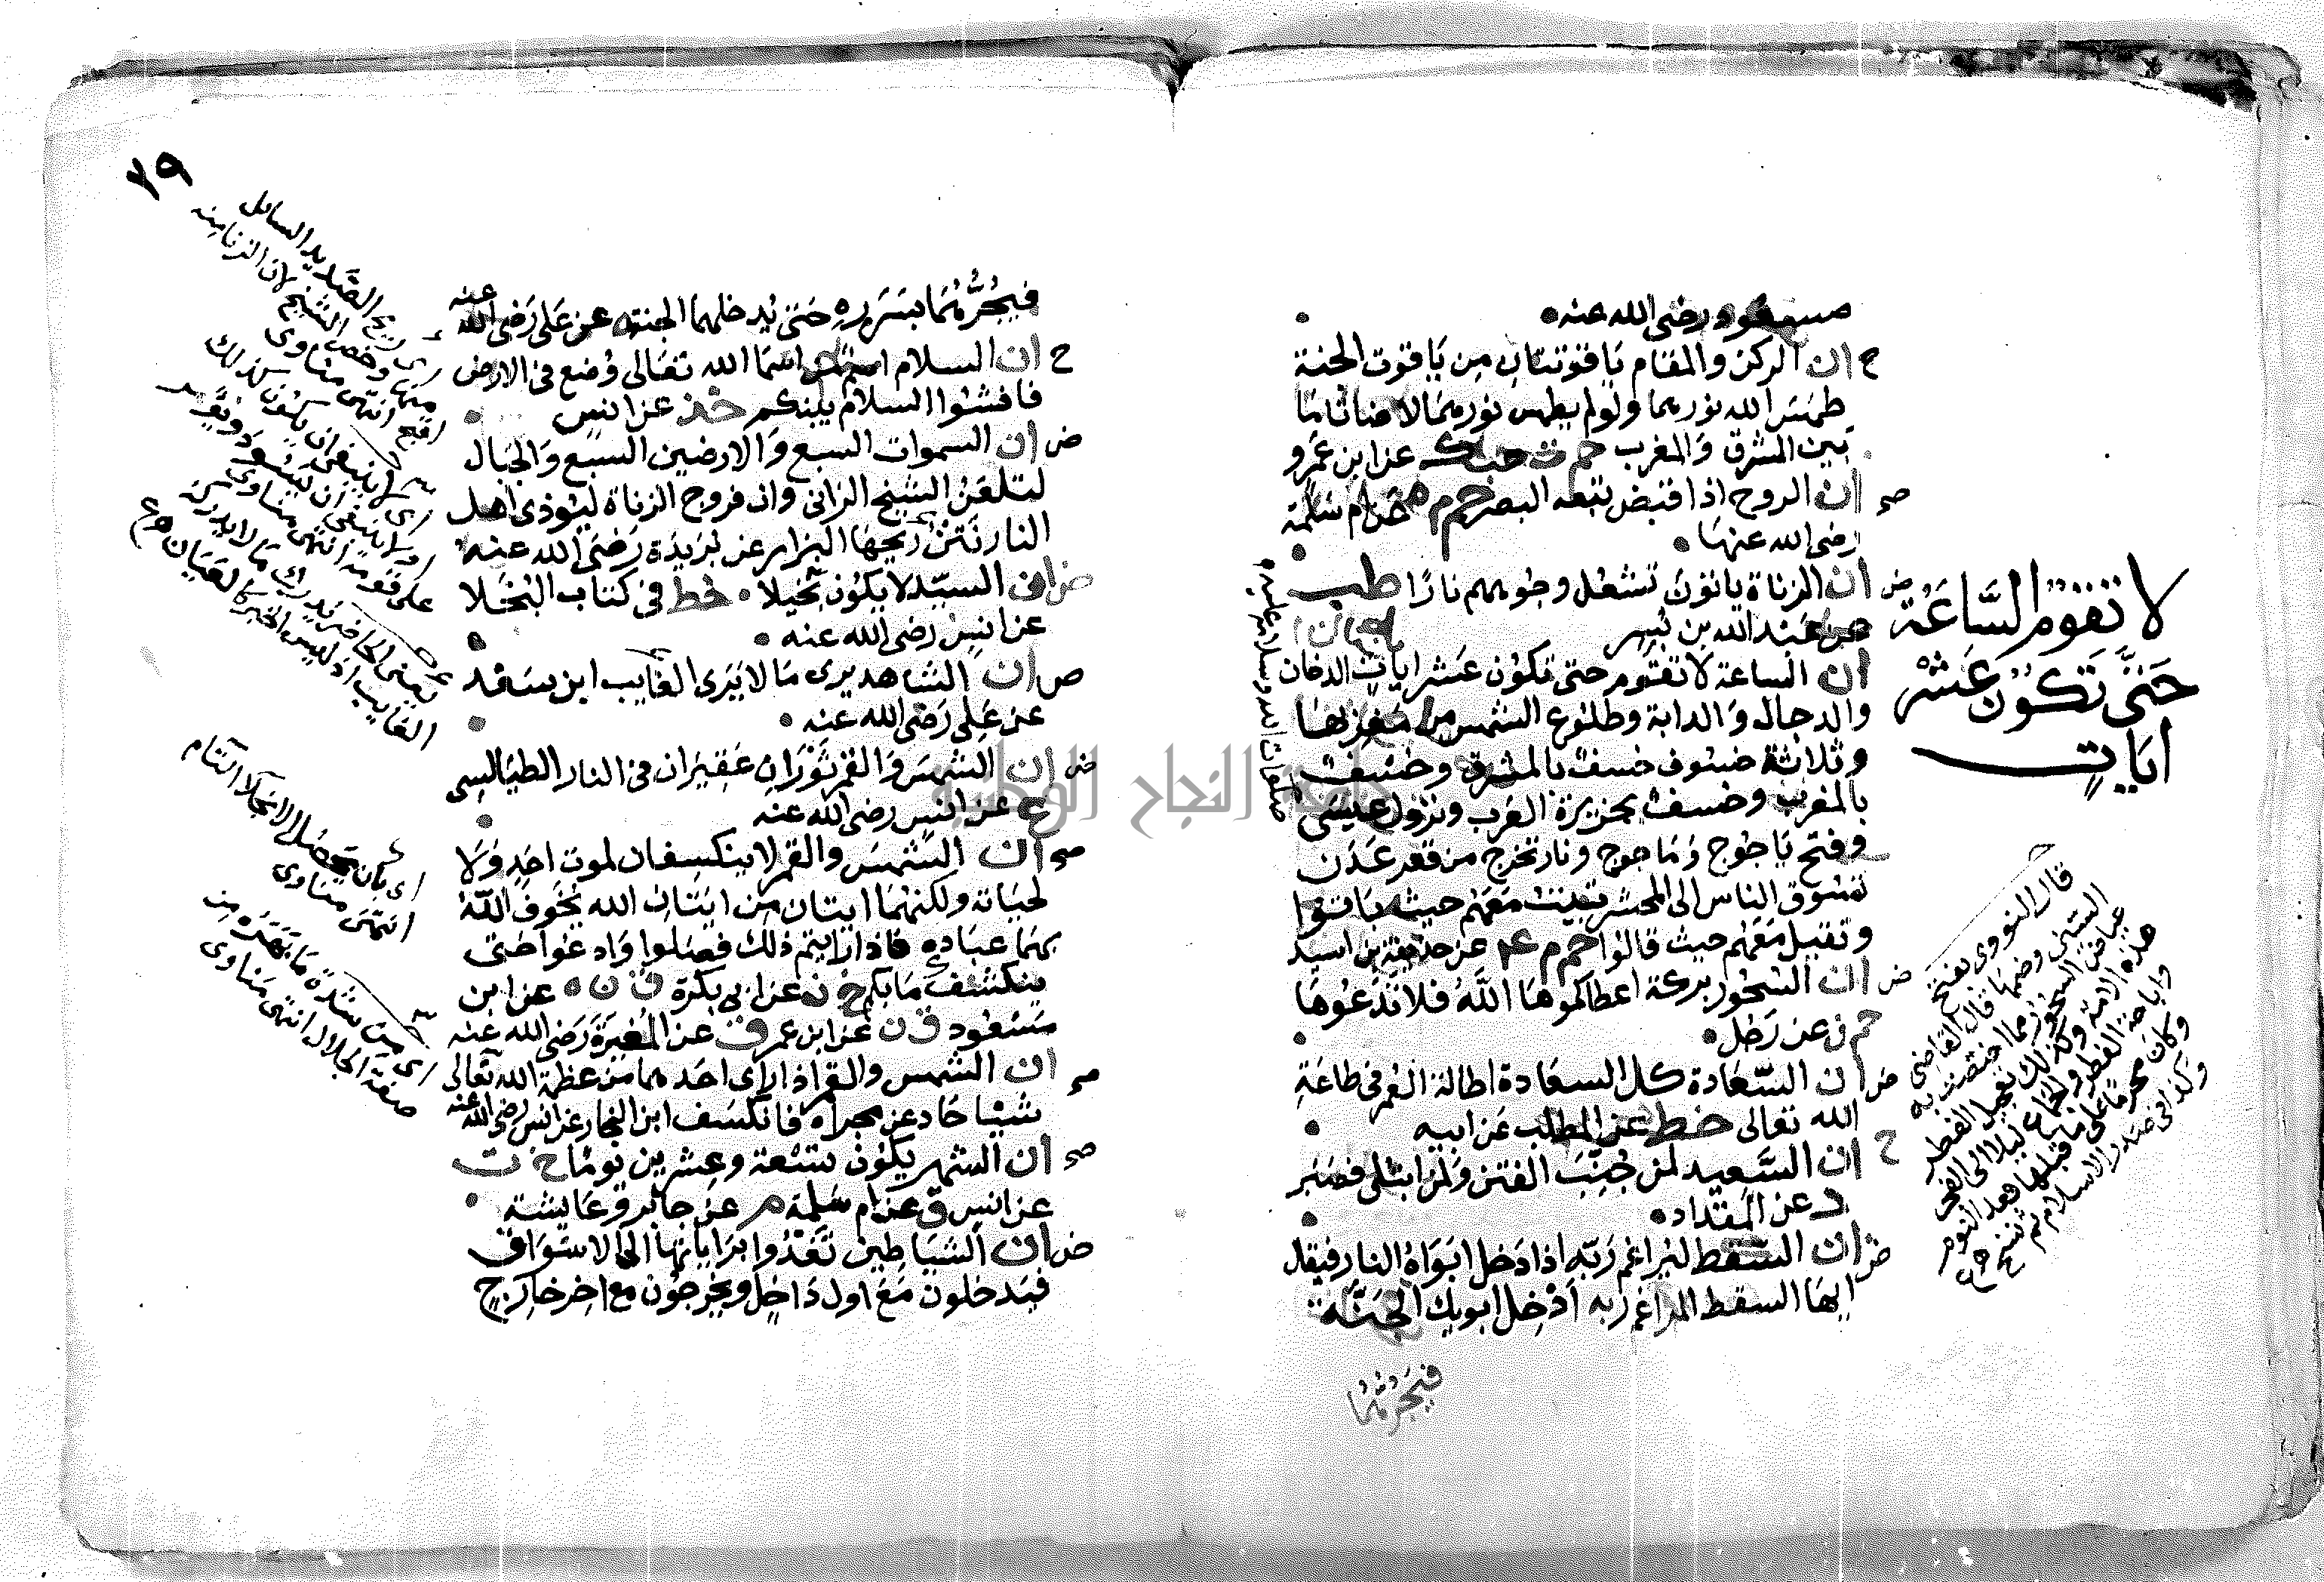 مسعود رضى الله عنه
ح ان الركن والمقام ياقوتتان من ياقوت الجنة
طمس الله نورهما ولو لم يطمس نورهما لاضاتا ما
بين المشرق والمغرب حم ت حب ك عن ابن عمرو
صح ان الروح اذا قبض تبعه البصر حم م ه عن ام سلمة
رضى الله عنها
ض ان الزناة ياتون تشعل وجوههم نارًا طب
عن عبد الله بن بسر
ان الساعة لا تقوم حتى تكون عشر ايات الدخان
والدجال والدابة وطلوع الشمس من مغربها
وثلاثة خسوف خسف بالمشرق وخسف
بالمغرب وخسف بجزيرة العرب ونزول عيسى
وفتح ياجوج وماجوج ونار تخرج من قعر عدن
تسوق الناس الى المحشر تبيت معهم حيث باتوا
وتقيل معهم حيث قالوا حم م عه عن حذيفة بن اسيد
ض ان السحور بركة اعطاكموها الله فلا تدعوها
حم ن عن رجل
ض ان السعادة كل السعادة اطالة العمر فى طاعة
الله تعالى خط عن المطلب عن ابيه
ح ان السعيد لمن جنب الفتن ولمن ابتلى فصبر
د عن المقداد
ض ان السقط ليراغم ربه اذا دخل ابواه النار فيقال
ايها السقط المراغم ربه ادخل ابويك الجنة
فيجرهما
لا تقوم الساعة
حتى تكون عشر
ايات
صلوات الله وسلامه عليه
قال النووى بفتح
السين وضمها قال القاضى
عياض السحور مما اختصت به
هذه الامة وكذلك تعجيل الفطر
واباحة الفطر والجماع ليلا الى الفجر
وكان محرما على من قبلها بعد النوم
وكذا فى صدر الاسلام ثم نسخ
٧٩
فيجرهما بسرره حتى يدخلهما الجنة ه عن على رضى الله عنه
ح ان السلام اسم من اسما الله تعالى وضع فى الارض
فافشوا السلام بينكم خد عن انس
ض ان السموات السبع والارضين السبع والجبال
لتلعن الشيخ الزانى وان فروج الزناة ليؤذى اهل
النار نتن ريحها البزار عن بريدة رضى الله عنه
ض ان السيد لا يكون بخيلا خط فى كتاب البخلا
عن انس رضى الله عنه
ض ان الشاهد يرى ما لا يرى الغايب ابن سعد
عن على رضى الله عنه
ض ان الشمس والقمر ثوران عقيران فى النار الطيالسى
ع عن انس رضى الله عنه
صح ان الشمس والقمر لا ينكسفان لموت احد ولا
لحياته ولكنهما ايتان من ايات الله يخوف الله
بهما عباده فاذا رايتم ذلك فصلوا وادعوا حتى
ينكشف ما بكم خ ن عن ابى بكرة ق ن ه عن ابن
مسعود ق ن عن ابن عمر ق عن المغيرة رضى الله عنه
صح ان الشمس والقمر اذا راى احدهما من عظمة الله تعالى
شيا حاد عن مجراه فانكسف ابن النجار عن انس رضى الله عنه
صح ان الشهر يكون تسعة وعشرين يوما خ ت
عن انس ق عن ام سلمة م عن جابر وعايشة
ض ان الشياطين تغدوا براياتها الى الاسواق
فيدخلون مع اول داخل ويخرجون مع اخر خارج
اى ريح الصديد السايل
منها وخص الشيخ لان الزنا منه
اقبح انتهى مناوى
اى لا ينبغى ان يكون كذلك
او لا ينبغى ان يسود ويؤمر
على قومه انتهى مناوى
يعنى الحاضر يدرك ما لا يدركه
الغايب اذ ليس الخبر كالعيان
اى بان يحصل الانجلا التام
انتهى مناوى
اى من شدة ما بهره من
صفة الجلال انتهى مناوى
جامعة النجاح الوطنية